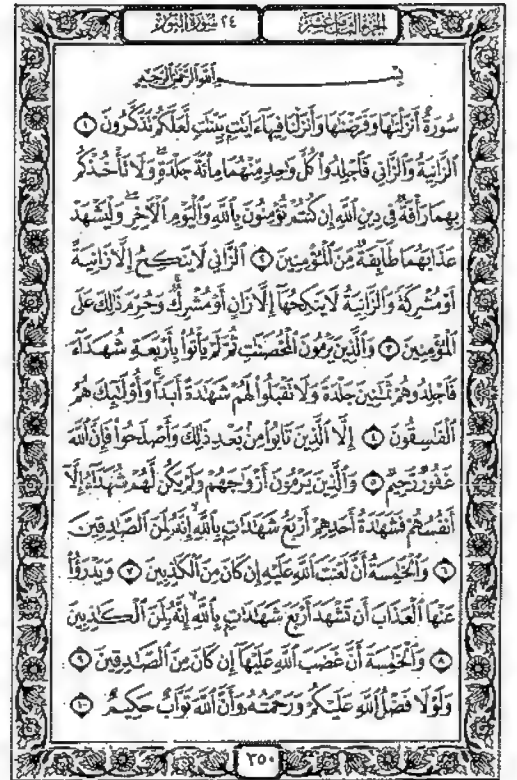 الجزء الثامن عشر
٢٤ سورة النور
بِسْمِ اللَّهِ الرَّحْمَٰنِ الرَّحِيمِ
سُورَةٌ أَنزَلْنَاهَا وَفَرَضْنَاهَا وَأَنزَلْنَا فِيهَا ءَايَٰتٍ بَيِّنَٰتٍ لَّعَلَّكُمْ تَذَكَّرُونَ ١
ٱلزَّانِيَةُ وَٱلزَّانِي فَٱجْلِدُوا۟ كُلَّ وَٰحِدٍ مِّنْهُمَا مِا۟ئَةَ جَلْدَةٍ وَلَا تَأْخُذْكُم
بِهِمَا رَأْفَةٌ فِي دِينِ ٱللَّهِ إِن كُنتُمْ تُؤْمِنُونَ بِٱللَّهِ وَٱلْيَوْمِ ٱلْءَاخِرِ وَلْيَشْهَدْ
عَذَابَهُمَا طَآئِفَةٌ مِّنَ ٱلْمُؤْمِنِينَ ٢ ٱلزَّانِي لَا يَنكِحُ إِلَّا زَانِيَةً
أَوْ مُشْرِكَةً وَٱلزَّانِيَةُ لَا يَنكِحُهَآ إِلَّا زَانٍ أَوْ مُشْرِكٌ وَحُرِّمَ ذَٰلِكَ عَلَى
ٱلْمُؤْمِنِينَ ٣ وَٱلَّذِينَ يَرْمُونَ ٱلْمُحْصَنَٰتِ ثُمَّ لَمْ يَأْتُوا۟ بِأَرْبَعَةِ شُهَدَآءَ
فَٱجْلِدُوهُمْ ثَمَٰنِينَ جَلْدَةً وَلَا تَقْبَلُوا۟ لَهُمْ شَهَٰدَةً أَبَدًا وَأُو۟لَٰٓئِكَ هُمُ
ٱلْفَٰسِقُونَ ٤ إِلَّا ٱلَّذِينَ تَابُوا۟ مِنۢ بَعْدِ ذَٰلِكَ وَأَصْلَحُوا۟ فَإِنَّ ٱللَّهَ
غَفُورٌ رَّحِيمٌ ٥ وَٱلَّذِينَ يَرْمُونَ أَزْوَٰجَهُمْ وَلَمْ يَكُن لَّهُمْ شُهَدَآءُ إِلَّآ
أَنفُسُهُمْ فَشَهَٰدَةُ أَحَدِهِمْ أَرْبَعُ شَهَٰدَٰتٍۭ بِٱللَّهِ إِنَّهُۥ لَمِنَ ٱلصَّٰدِقِينَ
٦ وَٱلْخَٰمِسَةُ أَنَّ لَعْنَتَ ٱللَّهِ عَلَيْهِ إِن كَانَ مِنَ ٱلْكَٰذِبِينَ ٧ وَيَدْرَؤُا۟
عَنْهَا ٱلْعَذَابَ أَن تَشْهَدَ أَرْبَعَ شَهَٰدَٰتٍۭ بِٱللَّهِ إِنَّهُۥ لَمِنَ ٱلْكَٰذِبِينَ
٨ وَٱلْخَٰمِسَةَ أَنَّ غَضَبَ ٱللَّهِ عَلَيْهَآ إِن كَانَ مِنَ ٱلصَّٰدِقِينَ ٩
وَلَوْلَا فَضْلُ ٱللَّهِ عَلَيْكُمْ وَرَحْمَتُهُۥ وَأَنَّ ٱللَّهَ تَوَّابٌ حَكِيمٌ ١٠
٣٥٠